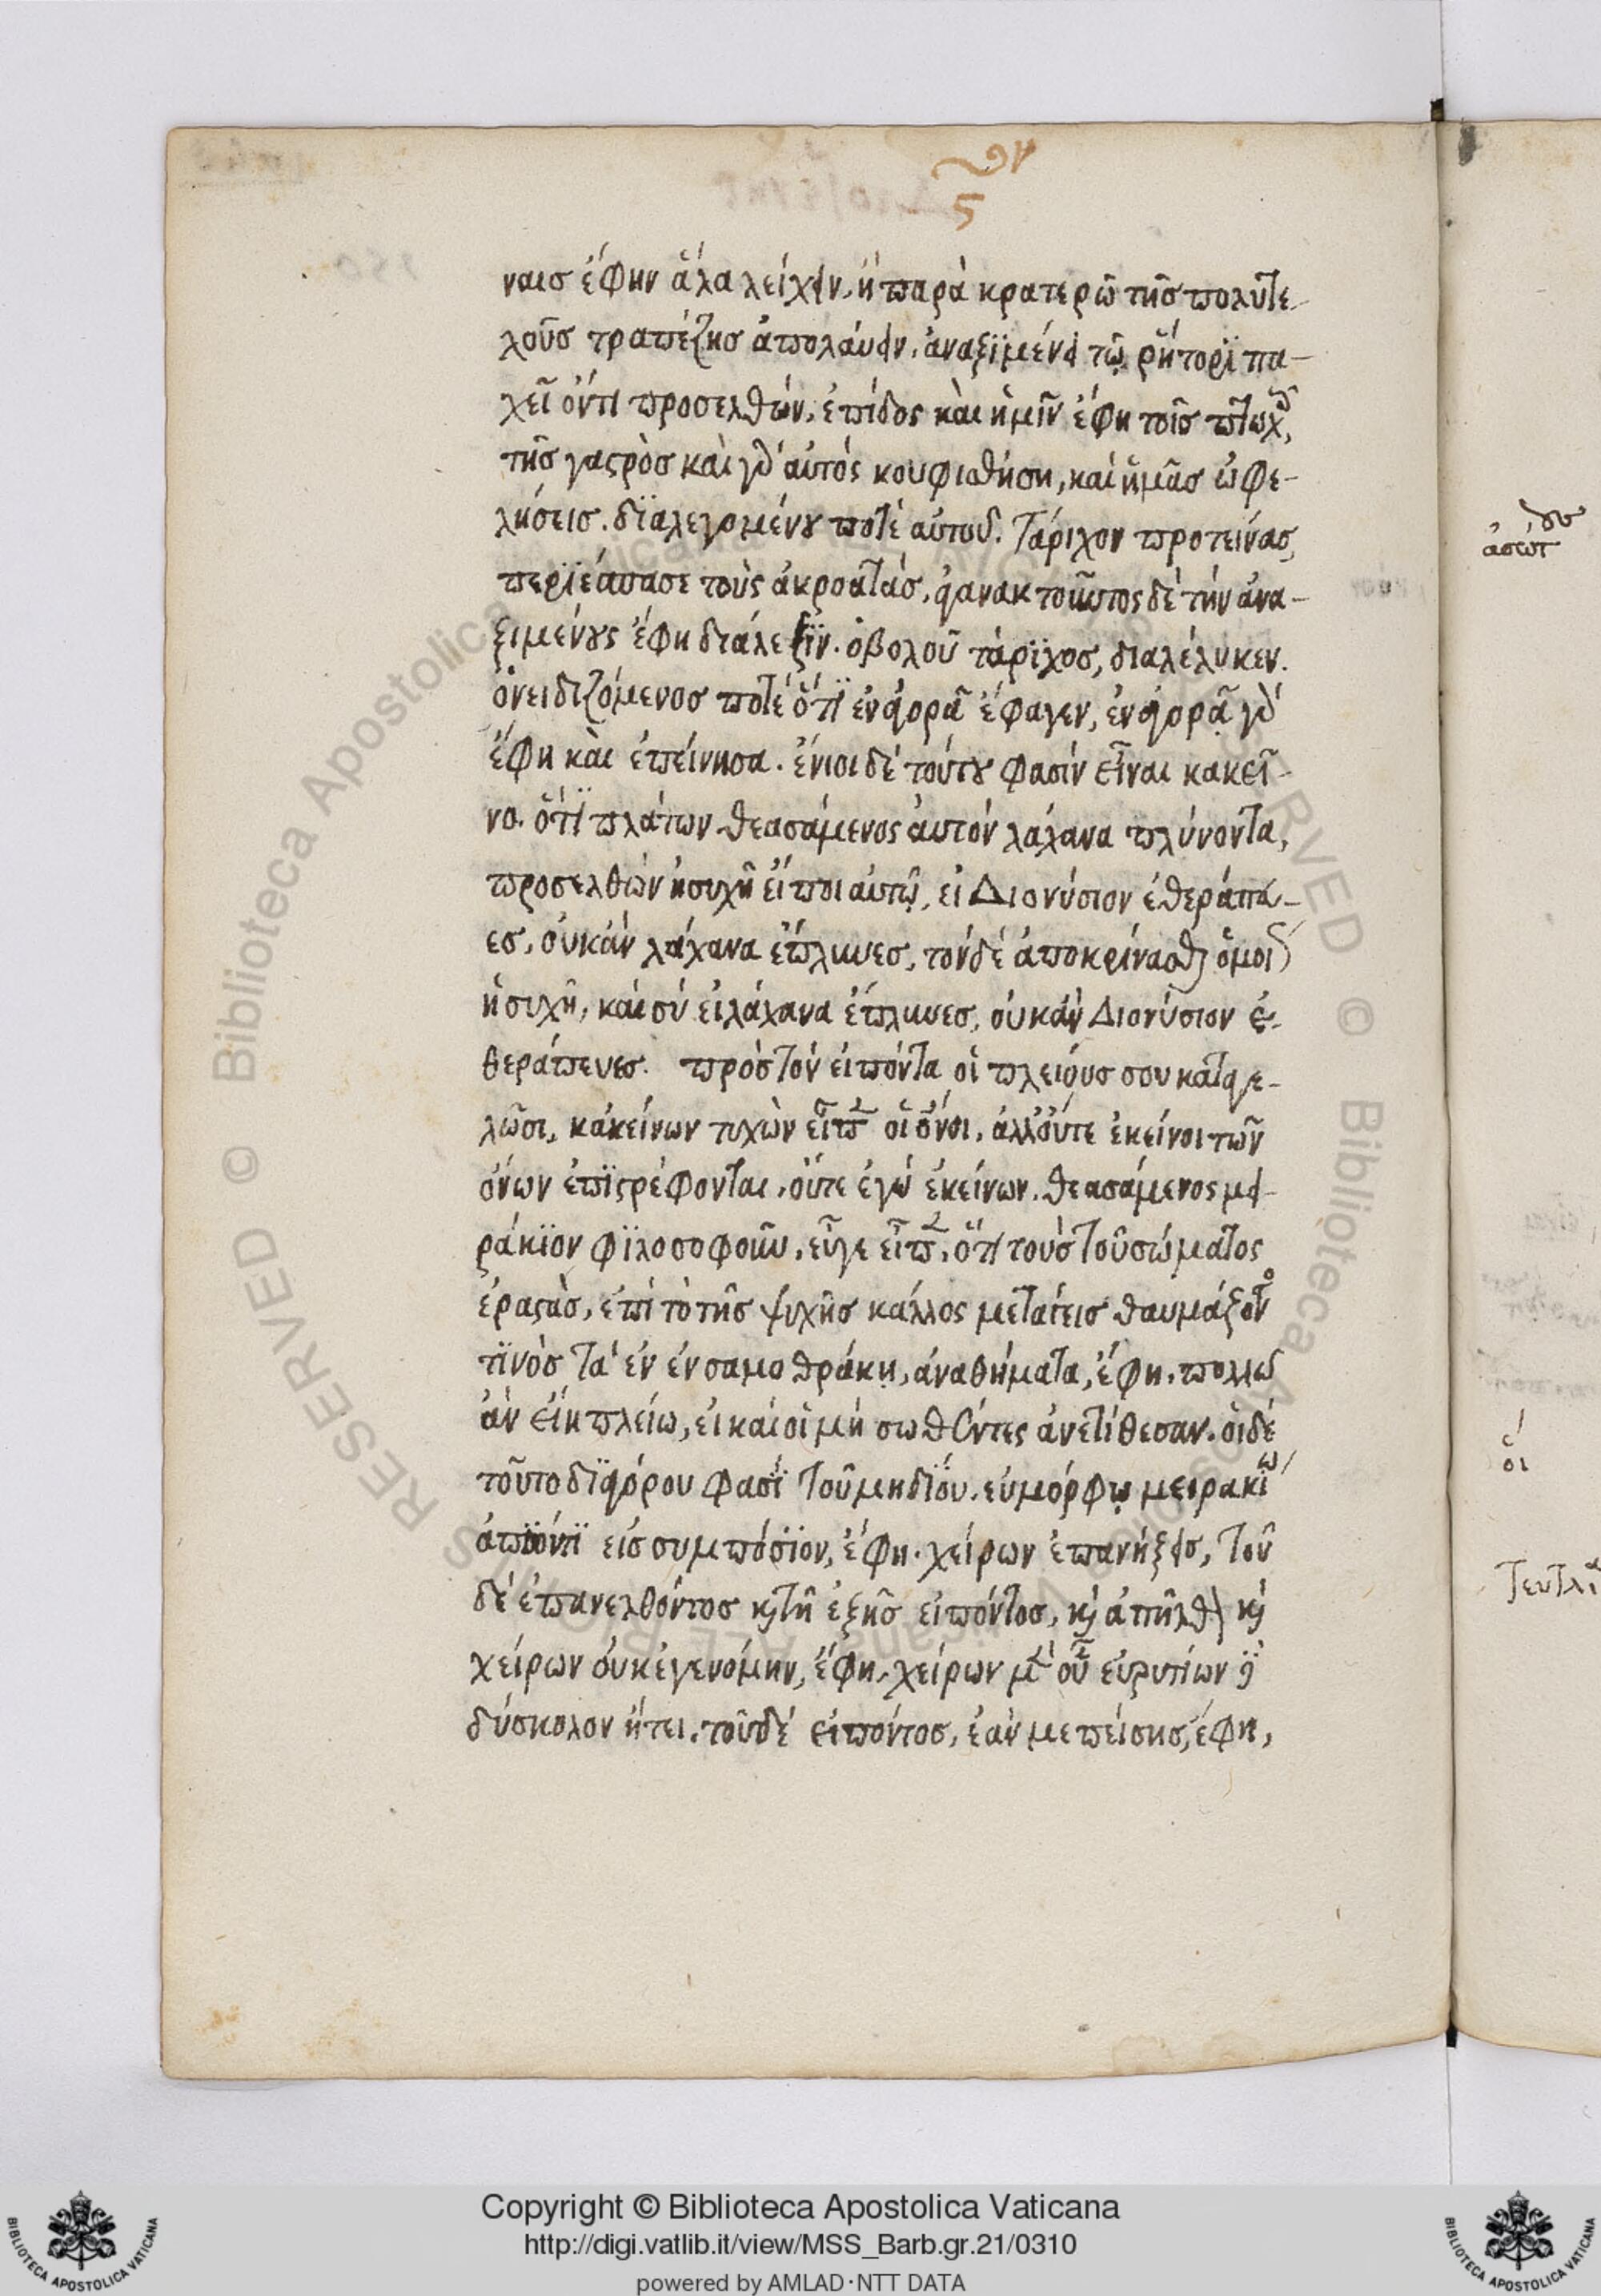 ναις ἔφην ἅλα λείχειν, ἢ παρὰ κρατερῶ τῆς πολυτε-
λοῦς τραπέζης ἀπολάυειν. ἀναξιμένει τῷ ῥήτορι πα-
χεῖ ὄντι προσελθών, ἐπίδος καὶ ἡμῖν ἔφη τοῖς πτωχοῖς,
τῆς γαστρὸς καὶ γὰρ αὐτὸς κουφισθήση, καὶ ἡμᾶς ὠφε-
λήσεις. διαλεγομένου ποτὲ αὐτοῦ. τάριχον προτείνας
περιέσπασε τοὺς ἀκροατάς, ἀγανακτοῦντος δὲ τὴν ἀνα-
ξιμένους ἔφη διάλεξιν. ὀβολοῦ τάριχος, διαλέλυκεν.
ὀνειδιζόμενος ποτὲ ὅτι ἐν ἀγορᾶ ἔφαγεν, ἐν ἀγορᾷ γὰρ
ἔφη καὶ ἐπείνησα. ἔνιοι δὲ τούτου φασὶν εἶναι κακεῖ-
νο. ὅτι πλάτων θεασάμενος αυτὸν λάχανα πλύνοντα,
προσελθὼν ἡσυχῆ εἴποι αὐτῷ, εἰ Διονύσιον ἐθεράπευ-
ες, οὐκ ἂν λάχανα ἔπλυνες, τὸν δὲ ἀποκρίνασθαι ὁμοίως
ἡσυχῆ, καὶ σὺ εἰ λάχανα ἔπλυνες, οὐκ ἂν Διονύσιον ἐ-
θεράπευες. πρὸς τὸν εἰπόντα οἱ πλείους σου καταγε-
λῶσι, κἀκείνων τυχὸν εἶπεν οἱ ὄνοι, ἀλλ' οὔτε ἐκεῖνοι τῶν
ὄνων ἐπιστρέφονται, οὔτε ἐγὼ ἐκείνων. θεασάμενος μει-
ράκιον φιλοσοφοῦν, εὖγε εἶπεν, ὅτι τοὺς τοῦ σώματος
ἐραστὰς, ἐπὶ τὸ τῆς ψυχῆς κάλλος μετάγεις θαυμάζοντος
τινὸς τὰ ἐν ἐν σαμοθράκῃ, ἀναθήματα, ἔφη, πολλῶ
ἂν εἴη πλείω, εἰ καὶ οἱ μὴ σωθέντες ἀνετίθεσαν. οἱ δὲ
τοῦτο διαγόρου φασὶ τοῦ μηδίου. εὐμόρφῳ μειρακίω
ἀπιόντι εἰς συμπόσιον, ἔφη. χείρων ἐπανήξεις, τοῦ
δὲ ἐπανελθόντος καὶ τῆ ἑξῆς εἰπόντος, καὶ ἀπῆλθον καὶ
χείρων οὐκ ἐγενόμην, ἔφη, χείρων μὲν οὖν εὐρυτίων
δύσκολον ἤτει. τοῦ δὲ εἰπόντος, ἐάν με πείσης, ἔφη,
οἱ